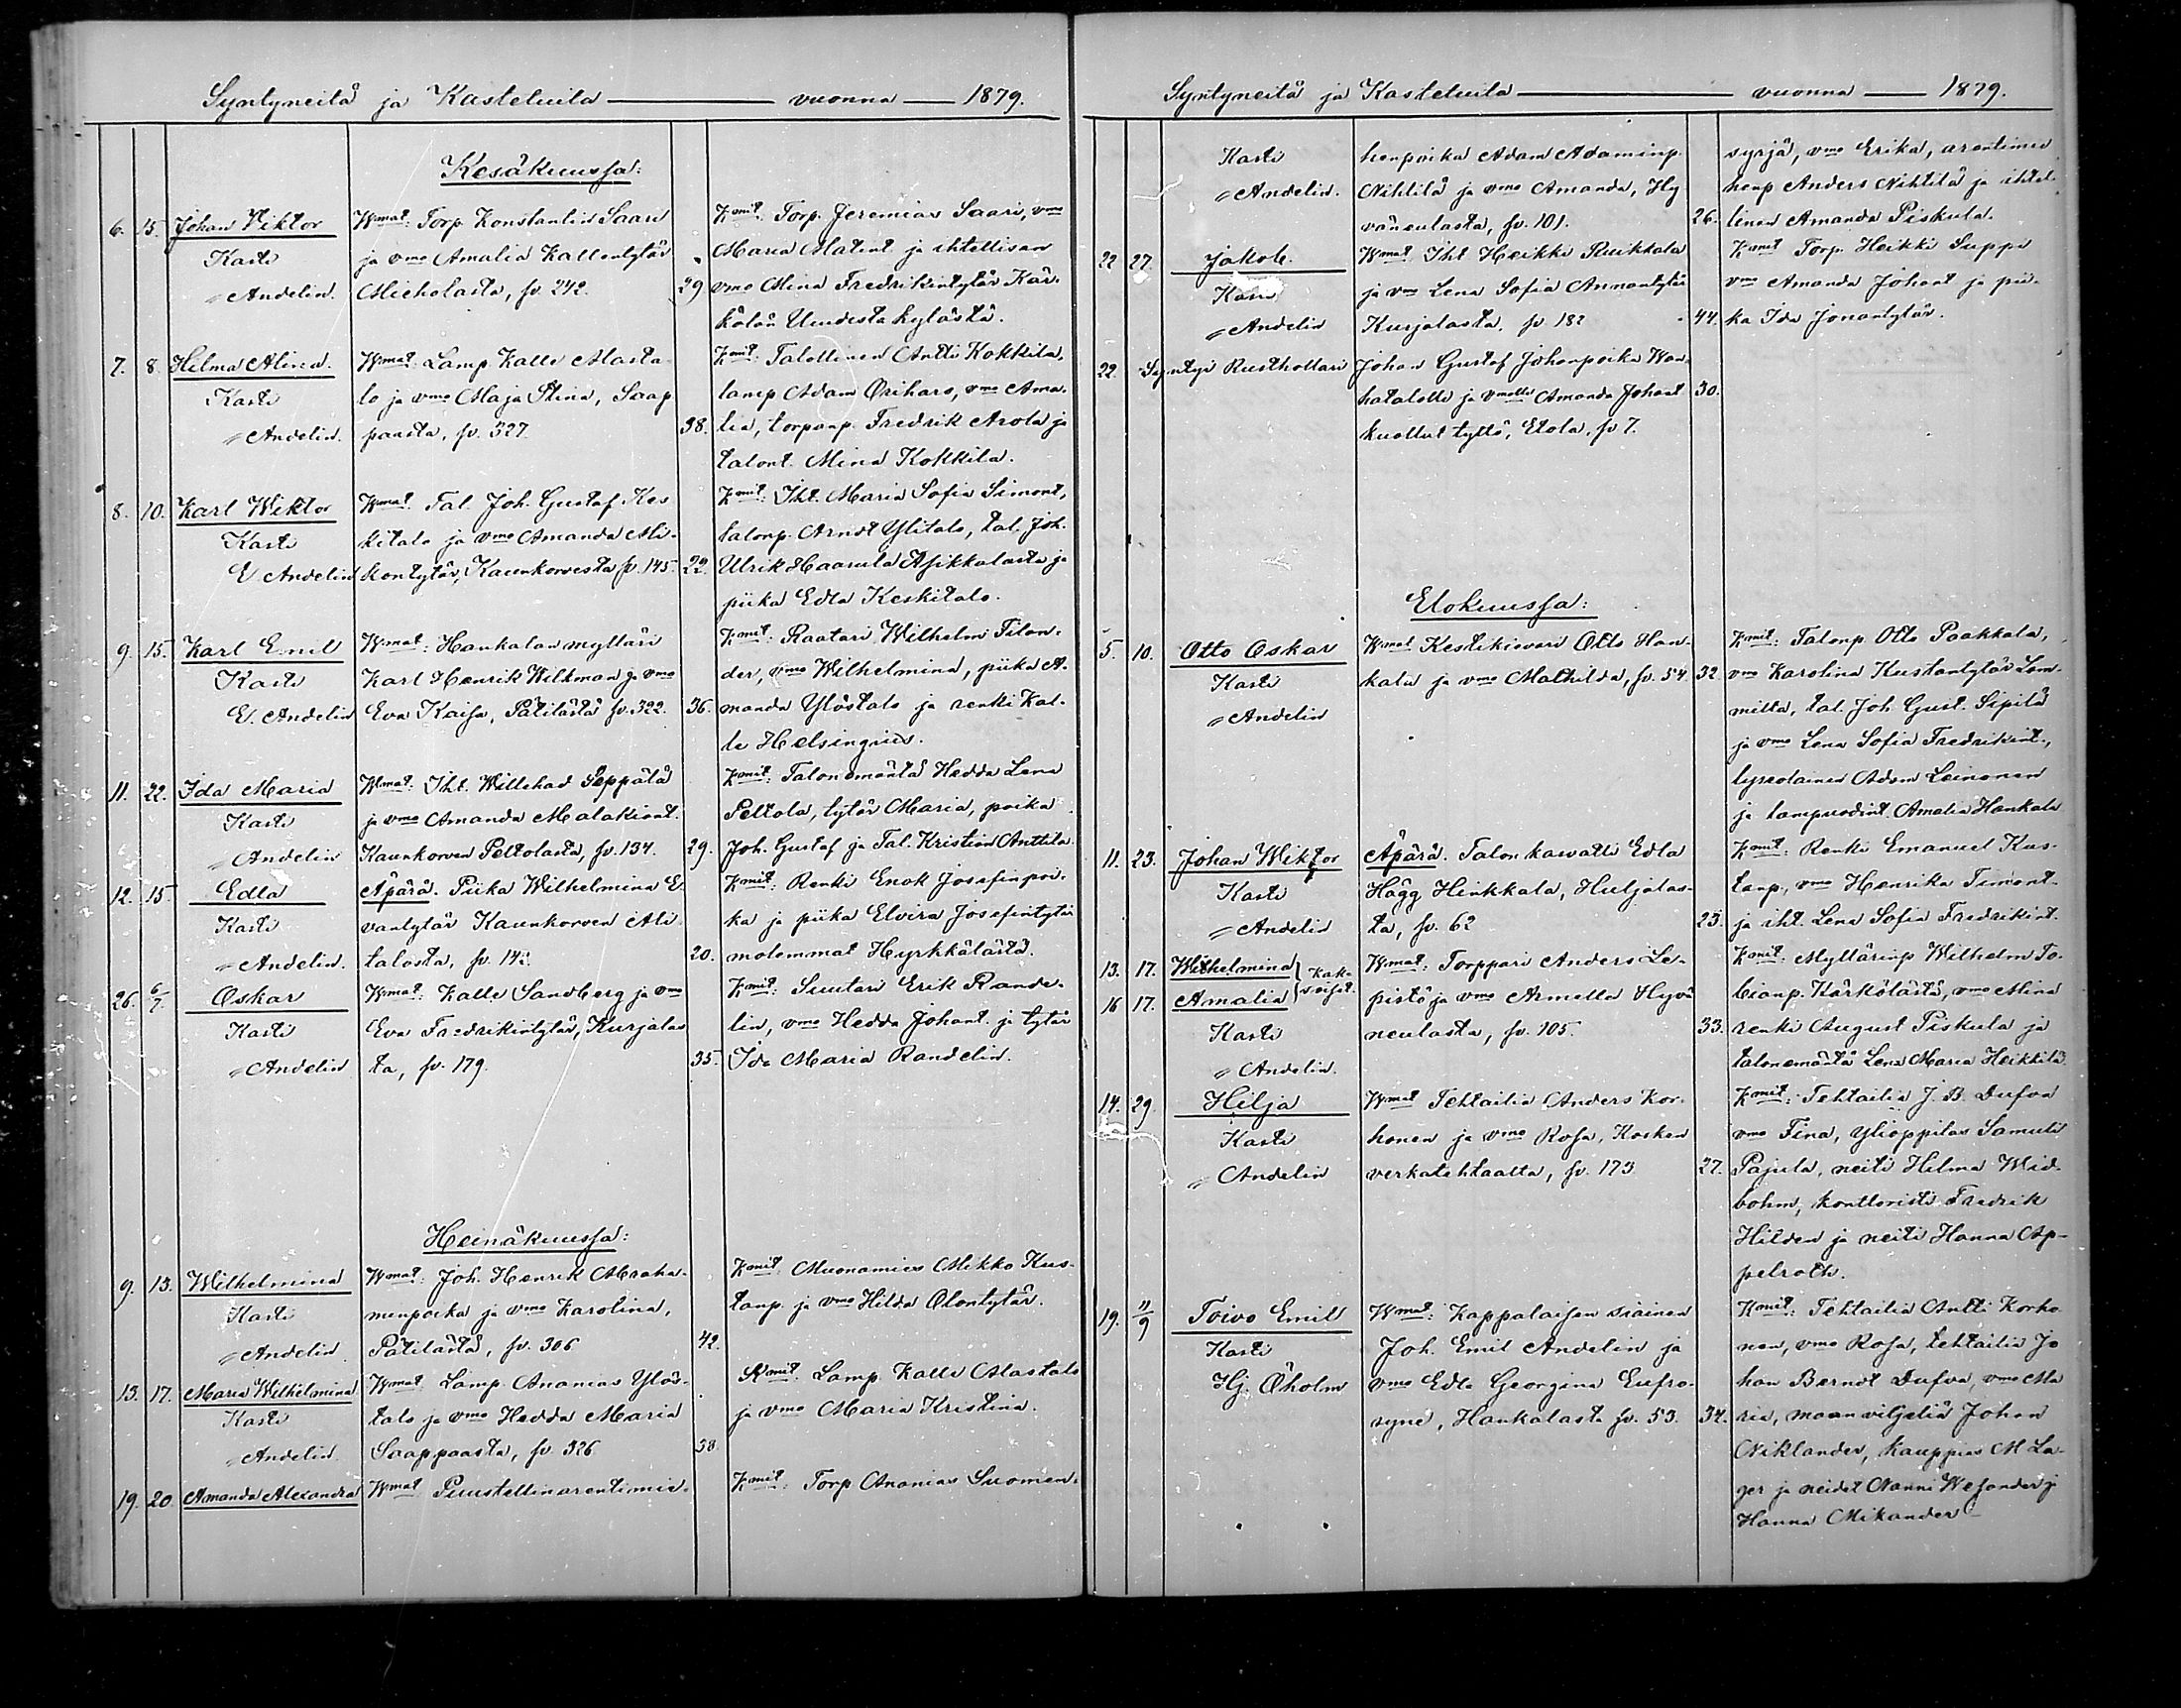 Syntyneitä ja Kasteluita vuonna 1879.
Kesäkuussa:
6. 15. Johan Viktor
Kasti
" Andelin.
Wmat: Torp. Konstantin Saari
ja vmo Amalia Kallentytär
Micholasta, fv. 242.
29
Kmit: Torp. Jeremias Saari, vmo
Maria Matint. ja ihtellisen
vmo Mina Fredrikintytär Kär-
kölän Uudesta kylästä.
7. 8. Helma Alina.
Kasti
" Andelin.
Wmat: Lamp. Kalle Alasta-
lo ja vmo Maja Stina, Saap
paasta, fv. 327.
38.
Kmit: Talollinen Antti Kokkila,
lamp. Adam Orihars, vmo Ama-
lia, torpanp. Fredrik Arola ja
talont. Mina Kokkila.
8. 10. Karl Wiktor
Kasti
E Andelin
Wmat: Tal. Joh. Gustaf Kes
kitalo ja vmo Amanda Mi-
kontytär, Kaunkorvesta fv. 145.
22.
Kmit: Iht. Maria Sofia Simont,
talonp. Arndt Ylitalo, tal. Joh.
Ulrik Haarula Asikkalasta ja
piika Edla Keskitalo.
9. 15. Karl Emil
Kasti
E. Andelin
Wmat: Hankalan myllari
Karl Henrik Wilkman ja vmo
Eva Kaisa, Pätilästä fv. 322.
36.
Kmit: Raatari Wilhelm Tilan-
der, vmo Wilhelmina, piika A-
manda Ylöstalo ja renki Kal-
le Helsingius.
11. 22. Ida Maria
Kasti
" Andelin
Wmat: Iht. Willehad Seppälä
ja vmo Amanda Malakiant.
Kaunkorven Peltolasta, fv. 134.
29.
Kmit: Talonemäntä Hedda Lena
Peltola, tytär Maria, poika
Joh. Gustaf ja Tal. Kristian Anttila
12. 15. Edla
Kasti
" Andelin.
Äpärä. Piika Wilhelmina E-
vantytär Kaunkorven Ali
talosta, fv. 142.
20.
Kmit: Renki Enok Josefinpoi-
ka ja piika Elvira Josefintytär
molemmat Hyrkkälästä.
26. 6/7. Oskar
Kasti
" Andelin
Wmat: Kalle Sandberg ja vmo
Eva Fredrikintytär, Kurjalas
ta, fv. 179.
35.
Kmit: Suutari Erik Rande-
lin, vmo Hedda Johant. ja tytär
Ida Maria Randelin.
Heinäkuussa:
9. 13. Wilhelmina
Kasti
" Andelin
Wmat: Joh. Henrik Abraha-
menpoika ja vmo Karolina,
Pätilästä, fv. 306
42.
Kmit: Muonamies Mikko Kus-
tanp. ja vmo Hilda Olontytär.
13. 17. Maria Wilhelmina
Kasti
" Andelin.
Wmat: Lamp. Ananias Ylös-
talo ja vmo Hedda Maria
Saappaasta, fv. 326
38.
Kmit: Lamp. Kalle Alastalo
ja vmo Maria Kristina.
19. 20. Amanda Alexandra
Wmat: Puustellinarentimie-
Kmit: Torp Ananias Suomen-
Syntyneitä ja Kasteluita vuonna 1879.
Kasti
" Andelin.
henpoika Adam Adaminp.
Nihtilä ja vmo Amanda, Hy
väneulasta, fv. 101.
26.
syrjä, vmo Erika, arentimie
henp Anders Nihtilä ja ihtel-
linen Amanda Piskula.
22 27. Jakob.
Kasti
" Andelin
Wmat: Iht Heikki Ruikkala
ja vmo Lena Sofia Annantytär
Kurjalasta, fv 182
44.
Kmit Torp. Heikki Suppi
vmo Amanda Johant ja pii-
ka Ida Jonantytär.
22. Syntyi Rusthollari Johan Gustaf Johanpoika Wan-
hatalolle ja vmolle Amanda Johant
kuollut tyttö, Etola, fv 7.
30.
Elokuussa:
5. 10. Otto Oskar
Kasti
" Andelin
Wmat Kestikievari Otto Han-
kala ja vmo Mathilda, fv. 54.
32
Kmit: Talonp. Otto Paakkala,
vmo Karolina Kustantytär Lem-
milta, tal. Joh. Gust. Sipilä
ja vmo Lena Sofia Fredrikint.,
lyseolainen Adam Leinonen
ja lampuodint. Amalia Hankala
11. 23. Johan Wiktor
Kasti
" Andelin
Äpärä. Talon kasvatti Edla
Hägg Heikkala, Huljalas-
ta, fv. 62
23.
Kmit: Renki Emanuel Kus-
tanp., vmo Henrika Simont.
ja iht. Lena Sofia Fredrikint.
13. 17. Wilhelmina } kak-
16 17. Amalia } soiset.
Kasti
" Andelin.
Wmat: Torppari Anders Le-
pistö ja vmo Armella Hyvä
neulasta, fv. 105.
33.
Kmit: Myllärinp Wilhelm To-
bianp. Kärkölästä, vmo Mina
renki August Piskula ja
talonemäntä Lena Maria Heikkilä.
14. 29. Hilja
Kasti
" Andelin
Wmat Tehtailia Anders Kor-
honen ja vmo Rosa, Kosken
verkatehtaalta, fv. 173
27.
Kmit: Tehtailia J. B. Dufva
vmo Fina, Ylioppilas Samuli
Pajula, neiti Hilma Wid-
bohm, konttoristi Fredrik
Hilden ja neiti Hanna Ap-
pelroth.
19. 11/9 Toivo Emil
Kasti
Hj: Öholm
Wmat: Kappalaisen siainen
Joh. Emil Andelin ja
vmo Edla Georgina Eufro-
syne, Hankalasta fv. 53.
34.
Kmit: Tehtailia Antti Korho
nen, vmo Rosa, tehtailia Jo
han Berndt Dufva, vmo Ma
ria, maanviljeliä Johan
Niklander, kauppias M La-
ger ja neidet Nanni Wesander ja
Hanna Mikander